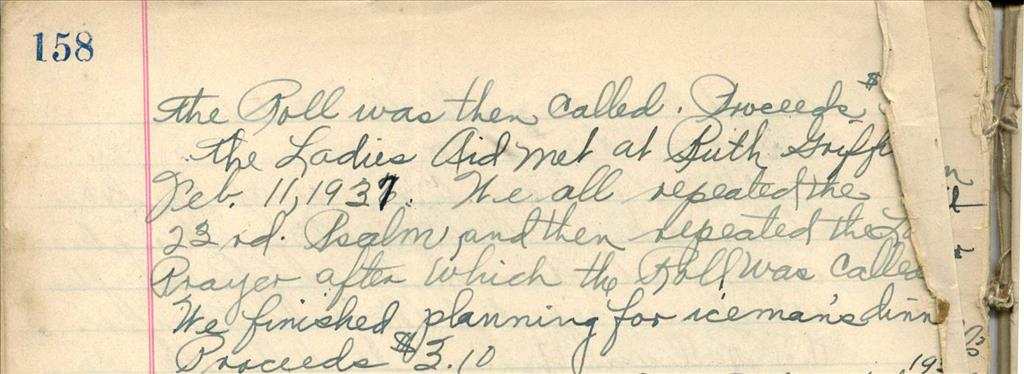 158
the Roll was then called. Proceeds $
the Ladies Aid met at Ruth Griff
Feb. 11, 1937. We all repeated the
23 rd. Psalm and then repeated the
Prayer after which the Roll was called
We finished planning for iceman's dinn
Proceeds $3.10
193